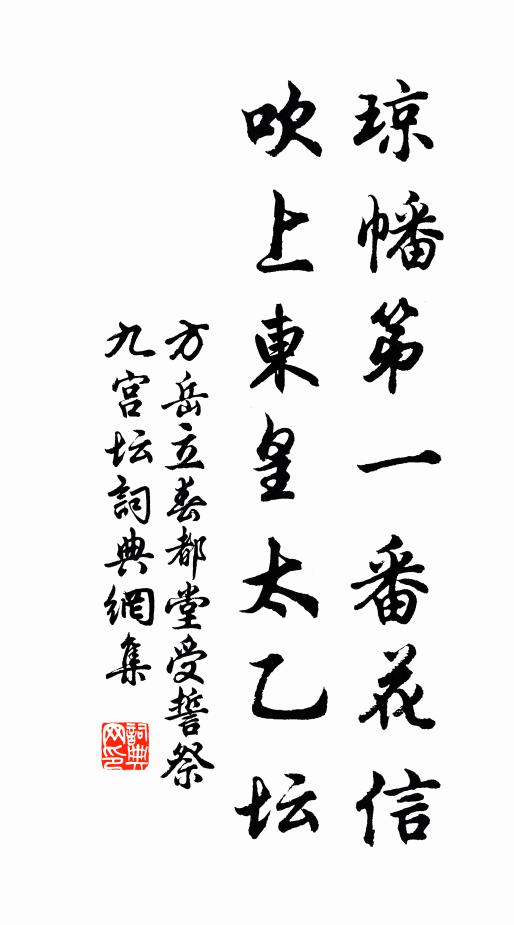 琼幡第一番花信
吹上東皇太乙坛
方岳立春都堂受誓祭
九宫坛詞典網集
詞典
网印